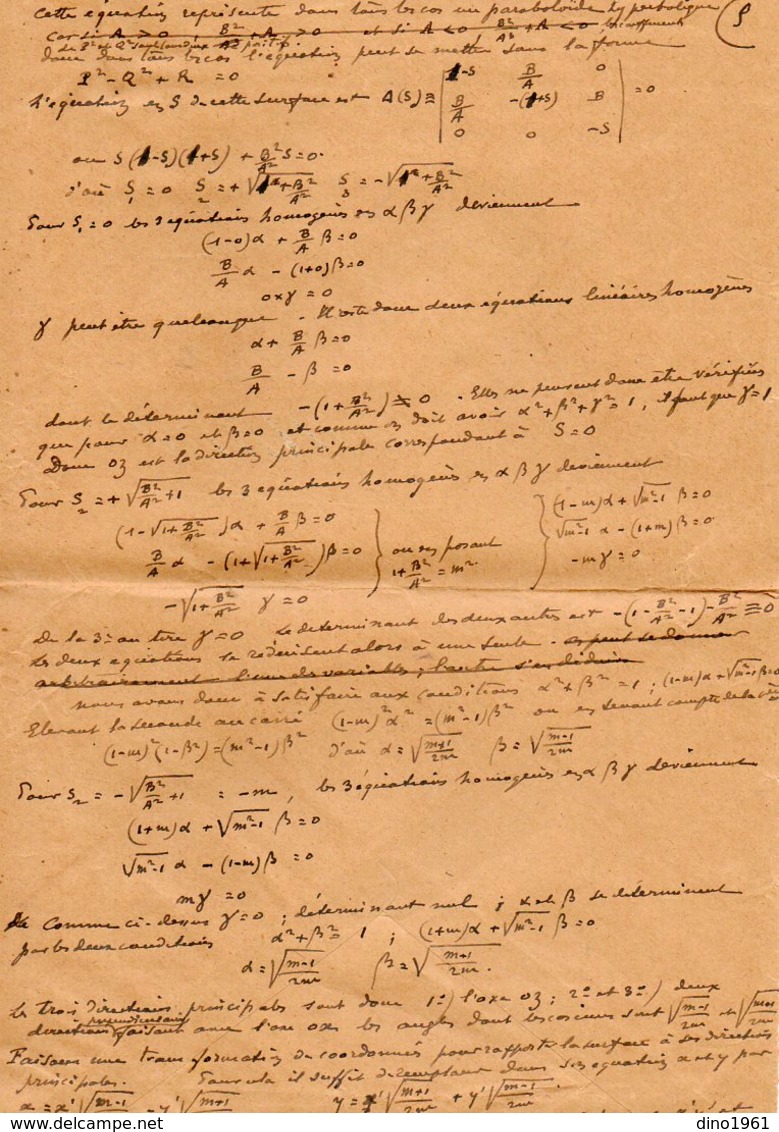 Cette équation représente dans tous les cas un paraboloïde hyperbolique
car si A > 0, B²/A² + A > 0 et si A < 0, B²/A² + A < 0
donc dans tous les cas l'équation peut se mettre sous la forme
P² - Q² + R = 0
L'équation en S de cette surface est A(S) ≡ | 1-S B/A 0 | = 0
| B/A -(1+S) B |
| 0 0 -S |
ou S(1-S)(1+S) + B²/A² S = 0.
d'où S₁ = 0 S₂ = +√(1 + B²/A²) S₃ = -√(1 + B²/A²)
Pour S₁ = 0 les 3 équations homogènes en α β γ deviennent
(1-0)α + B/A β = 0
B/A α - (1+0)β = 0
0×γ = 0
γ peut être quelconque. Il reste donc deux équations linéaires homogènes
α + B/A β = 0
B/A - β = 0
dont le déterminant -(1 + B²/A²) ≠ 0. Elles ne peuvent donc être vérifiées
que pour α = 0 et β = 0 et comme on doit avoir α² + β² + γ² = 1, il faut que γ = 1
Donc Oz est la direction principale correspondant à S = 0
Pour S₂ = +√(B²/A² + 1) les 3 équations homogènes en α β γ deviennent
(1-√(1+B²/A²))α + B/A β = 0 (1-m)α + √(m²-1) β = 0
B/A α - (1+√(1+B²/A²))β = 0 ou en posant 1+B²/A² = m² √(m²-1) α - (1+m)β = 0
-√(1+B²/A²) γ = 0 -mγ = 0
De la 3e on tire γ = 0 Le déterminant des deux autres est -(1 - B²/A² - 1) - B²/A² ≡ 0
Les deux équations se réduisent alors à une seule. on peut se donner
arbitrairement l'une des variables, l'autre s'en déduira
nous avons donc à satisfaire aux conditions α² + β² = 1 ; (1-m)α + √(m²-1) β = 0
Elevant la seconde au carré (1-m)²α² = (m²-1)β² ou en tenant compte de la 1ère
(1-m)²(1-β²) = (m²-1)β² d'où α = √(m+1/2m) β = √(m-1/2m)
Pour S₂ = -√(B²/A² + 1) = -m, les 3 équations homogènes en α β γ deviennent
(1+m)α + √(m²-1) β = 0
√(m²-1) α - (1-m)β = 0
mγ = 0
Comme ci-dessus γ = 0 ; déterminant nul ; α et β se déterminent
par les deux conditions α² + β² = 1 ; (1+m)α + √(m²-1) β = 0
α = √(m-1/2m) β = √(m+1/2m).
Les trois directions principales sont donc 1°) l'axe Oz ; 2° et 3°) deux
directions perpendiculaires faisant avec l'axe Ox les angles dont les cosinus sont √(m-1/2m) et √(m+1/2m)
Faisons une transformation de coordonnées pour rapporter la surface à ses directions
principales. Pour cela il suffit de remplacer dans son équation x et y par
x = x'√(m-1/2m) - y'√(m+1/2m) y = x'√(m+1/2m) + y'√(m-1/2m).
dino1961